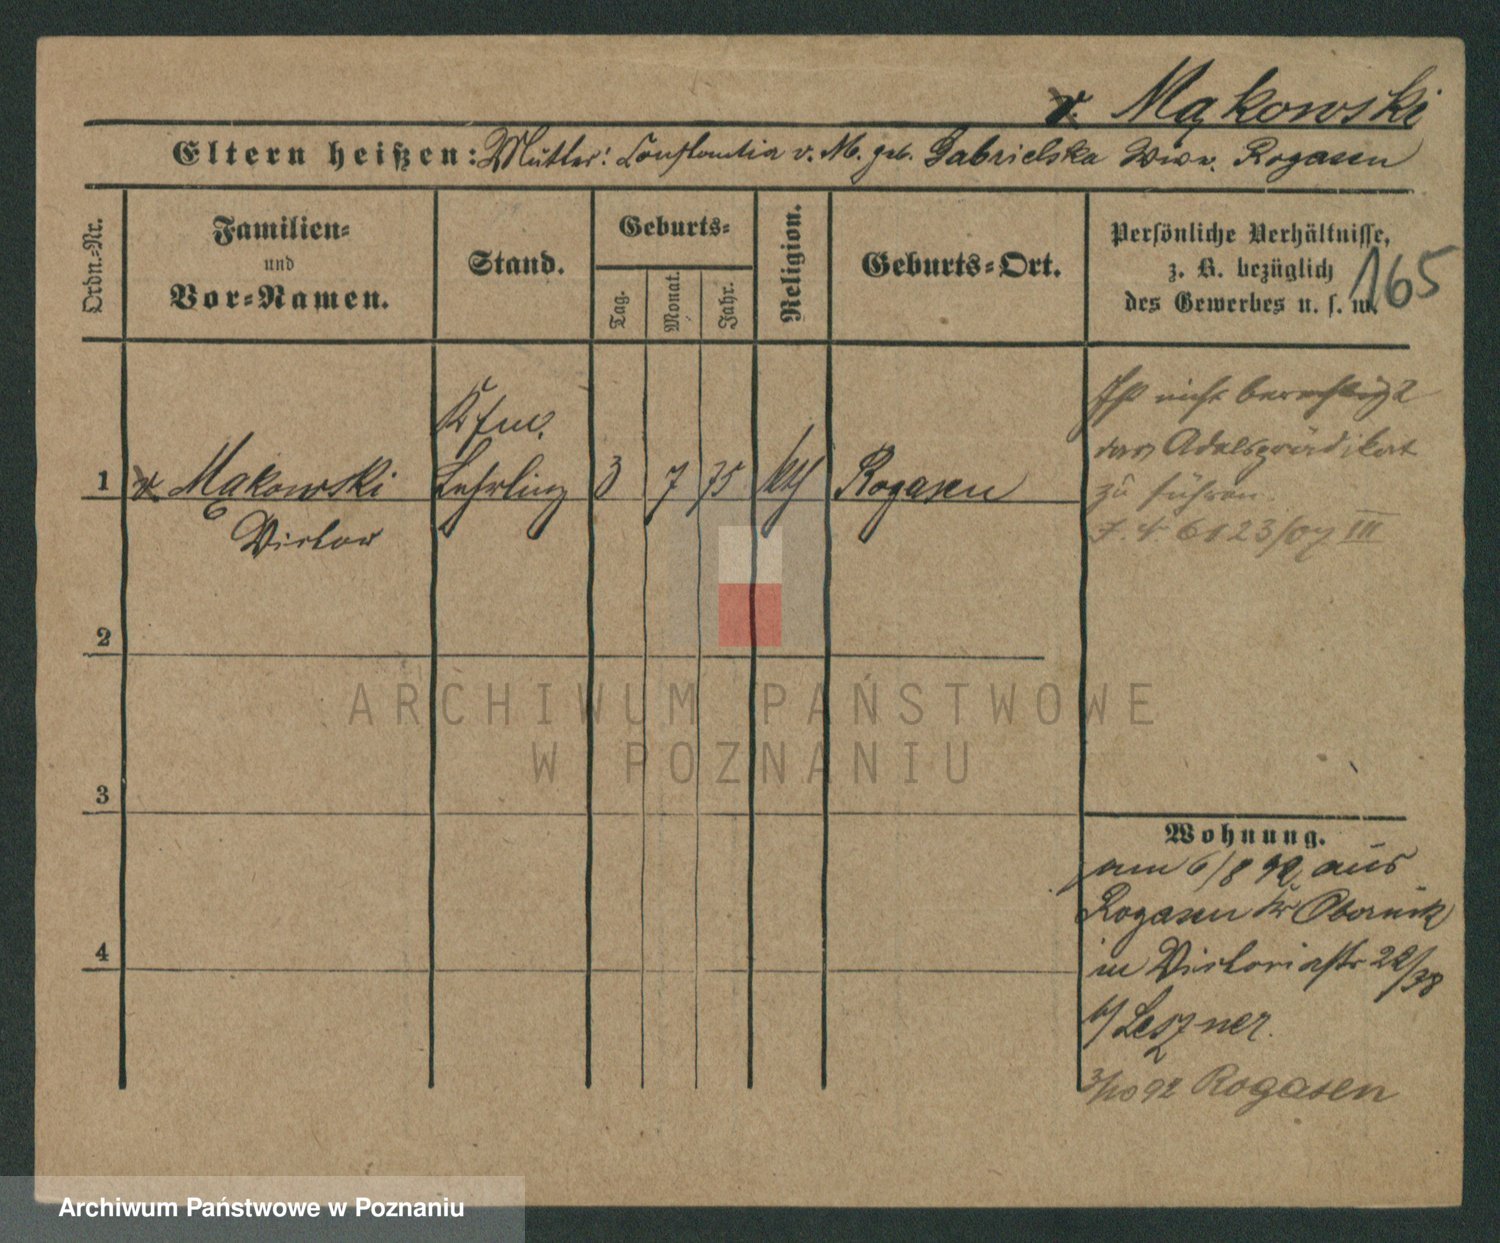 v. Mąkowski
Eltern heißen: Mutter: Constantia v. M. geb. Gabrielska Wwe. Rogasen
Ordn.-Nr.
Familien-
und
Vor-Namen.
Stand.
Geburts-
Tag.
Monat.
Jahr.
Religion.
Geburts-Ort.
Persönliche Verhältnisse,
z. B. bezüglich
des Gewerbes u. s. w.
165
Kfm.
1 v Mąkowski Lehrling 3 7 75 kth Rogasen
Victor
Ist nicht berechtigt
das Adelsprädikat
zu führen.
6123/07 III
2
3
4
Wohnung.
am 6/8 92 aus
Rogasen Kr Obornik
in Victoriastr 22/38
b/ Leszner.
3/10 92 Rogasen
ARCHIWUM PAŃSTWOWE
W POZNANIU
Archiwum Państwowe w Poznaniu